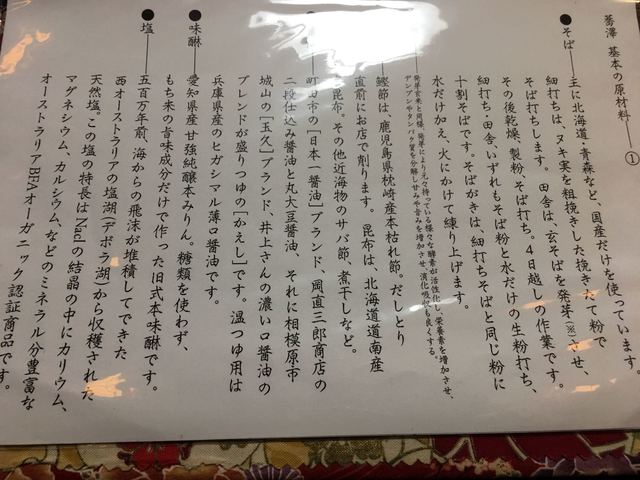 蕎澤 基本の原材料――①
●そば――主に北海道・青森など、国産だけを使っています。
細打ちは、ヌキ実を粗挽きした挽きたて粉で
そば打ちします。田舎は、玄そばを発芽(※)させ、
その後乾燥、製粉、そば打ち。4日越しの作業です。
細打ち・田舎、いずれもそば粉と水だけの生粉打ち、
十割そばです。そばがきは、細打ちそばと同じ粉に
水だけ加え、火にかけて練り上げます。
発芽玄米と同様、発芽により元々持っている様々な酵素が活性化し、栄養素を増加させ、
デンプンやタンパク質を分解し甘みや旨みを増加させ、消化吸収も良くする。
鰹節は、鹿児島県枕崎産本枯れ節。だしとり
直前にお店で削ります。昆布は、北海道道南産
昆布。その他近海物のサバ節、煮干しなど。
町田市の［日本一醤油］ブランド、岡直三郎商店の
二段仕込み醤油と丸大豆醤油、それに相模原市
城山の［玉久］ブランド、井上さんの濃い口醤油の
ブレンドが盛りつゆの［かえし］です。温つゆ用は
兵庫県産のヒガシマル薄口醤油です。
●味醂――愛知県産 甘強純醸本みりん。糖類を使わず、
もち米の旨味成分だけで作った旧式本味醂です。
●塩――五百万年前、海からの飛沫が堆積してできた
西オーストラリアの塩湖(デボラ湖)から収穫された
天然塩。この塩の特長は、Naclの結晶の中にカリウム、
マグネシウム、カルシウム、などのミネラル分豊富な
オーストラリアBFAオーガニック認証商品です。